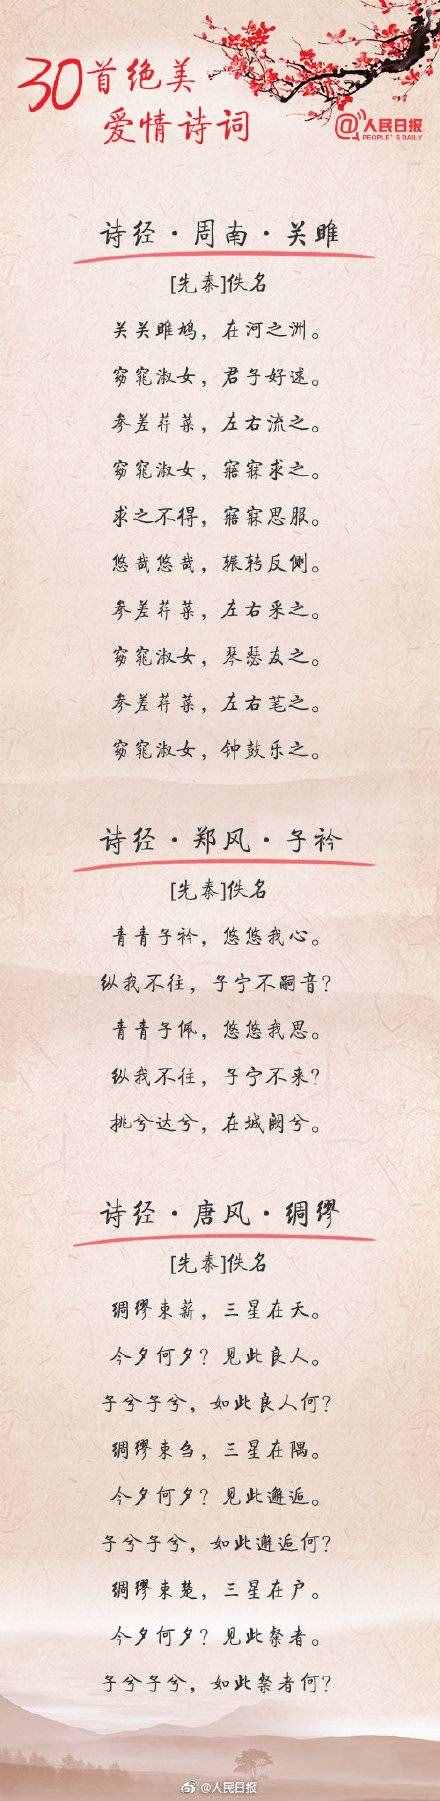 30首绝美
爱情诗词
@人民日报
PEOPLE'S DAILY
诗经·周南·关雎
[先秦]佚名
关关雎鸠，在河之洲。
窈窕淑女，君子好逑。
参差荇菜，左右流之。
窈窕淑女，寤寐求之。
求之不得，寤寐思服。
悠哉悠哉，辗转反侧。
参差荇菜，左右采之。
窈窕淑女，琴瑟友之。
参差荇菜，左右芼之。
窈窕淑女，钟鼓乐之。
诗经·郑风·子衿
[先秦]佚名
青青子衿，悠悠我心。
纵我不往，子宁不嗣音？
青青子佩，悠悠我思。
纵我不往，子宁不来？
挑兮达兮，在城阙兮。
诗经·唐风·绸缪
[先秦]佚名
绸缪束薪，三星在天。
今夕何夕？见此良人。
子兮子兮，如此良人何？
绸缪束刍，三星在隅。
今夕何夕？见此邂逅。
子兮子兮，如此邂逅何？
绸缪束楚，三星在户。
今夕何夕？见此粲者。
子兮子兮，如此粲者何？
@人民日报